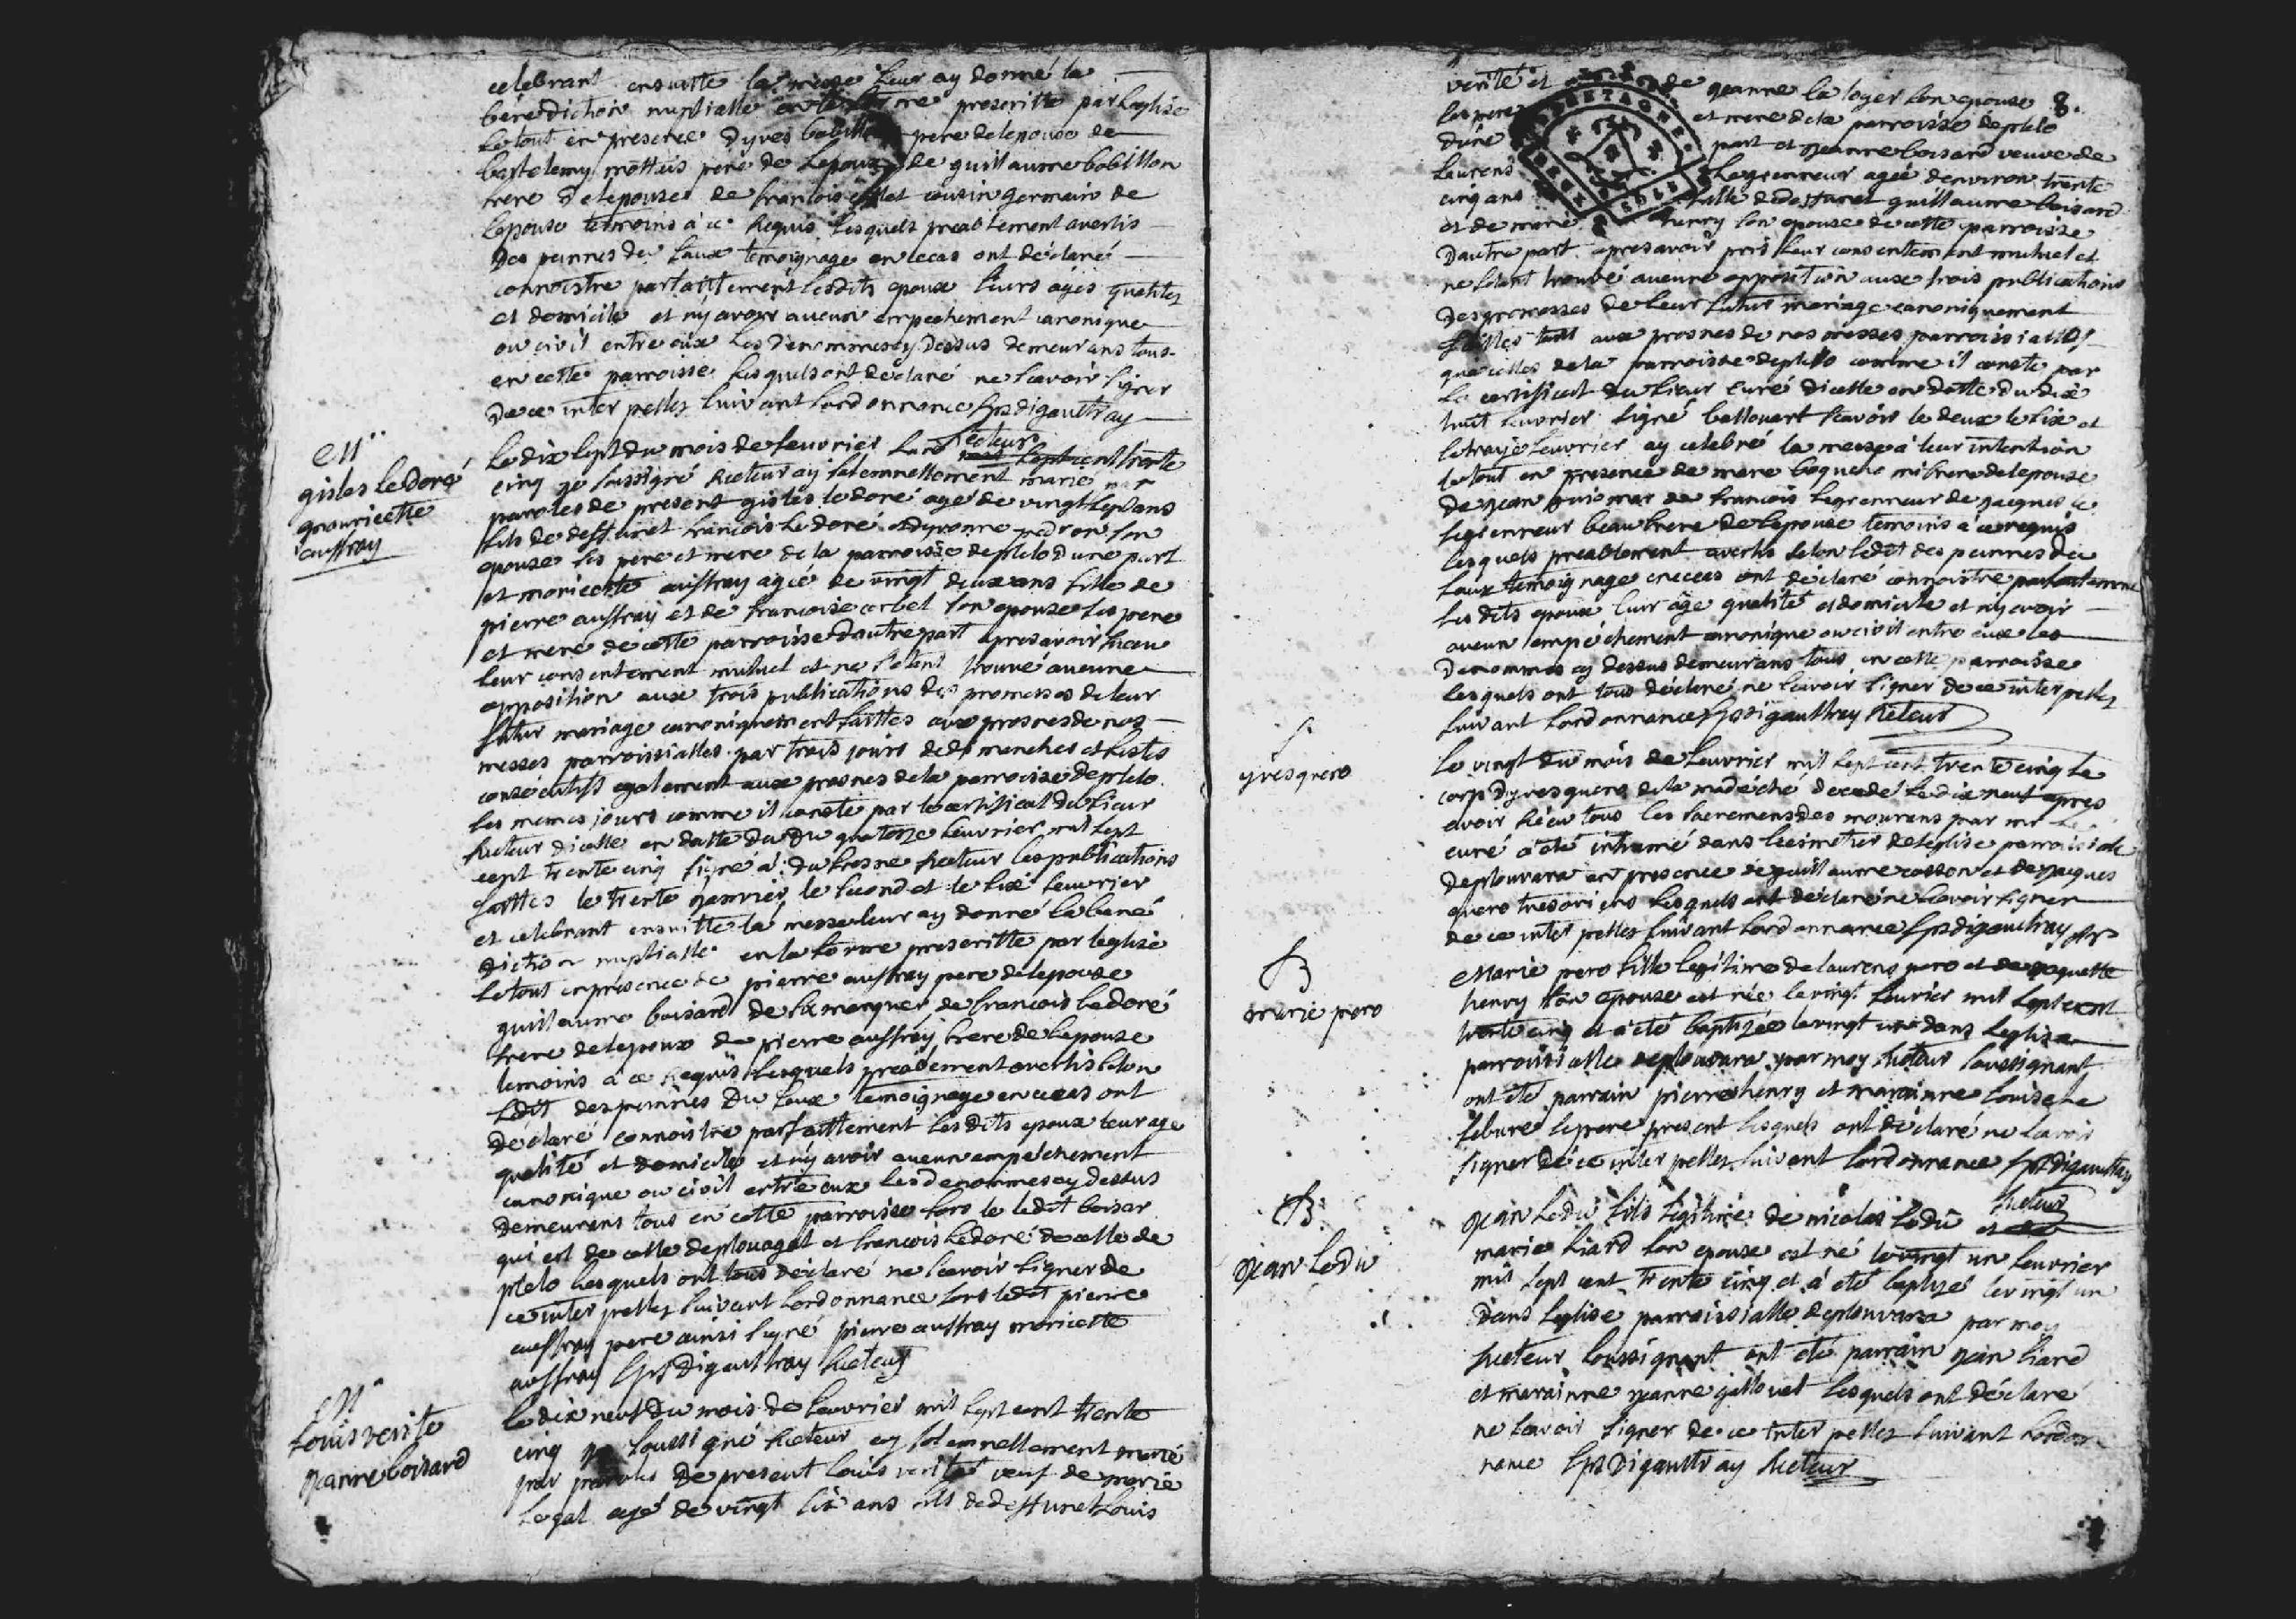 celebrant ensuitte la messe leur ay donné la
bénédiction nuptialle en la forme prescritte par leglise
le tout en presence dyves bobillon pere de lepouse de
bartelemy mottais pere de lepoux de guillaume bobillon
frere de lepouse de francois cousin germain de
lepouse temoins à ce requis lesquels preablement avertis
des pennes du faux temoignage en lecas ont déclaré
connoistre parfaittement lesdits epoux leurs ages qualitez
et domicile et ny avoir aucun empechement canonique
ou civil entre eux les denommes cy dessus demeurans tous
en cette parroisse lesquels ont declaré ne scavoir signer
de ce interpellez suivant lordonnance digaultray
M
gisles le doré
mouricette
auffray
le dix sept du mois de feuvrier mil sept cent trente
cinq je soussigné recteur ay solemnellement marie par
paroles de present gisles le doré agé de vingt sept ans
fils de deffunct francois le doré et dyvonne pedron son
epouse ses pere et mere de la parroisse de plelo dune part
et moricette auffray agée de vingt deux ans fille de
pierre auffray et de francoise corbel son epouse ses pere
et mere de cette parroisse dautre part apres avoir receu
leur consentement mutuel et ne setant trouvé aucune
opposition aux trois publications des promesses de leur
futur mariage canoniquement faittes aux prosnes de nos
messes parroissialles par trois jours de dimenches et festes
consécutifs egalement aux prosnes de la parroisse de plelo
les memes jours comme il conste par le certificat du sieur
recteur dicelle en datte du du quatorze feuvrier mil sept
cept trente cinq signé a du fresne recteur les publications
faittes le trente janvier le second et le six feuvrier
et celebrant ensuitte la messe leur ay donné la béné
diction nuptialle en la forme prescritte par leglise
le tout en presence de pierre auffray pere de lepouse
guillaume boisard de francois le doré
frere de lepoux de pierre auffray frere de lepouse
temoins a ce requis lesquels preablement avertis selon
ledit des pennes du faux temoignage en ce cas ont
déclaré connoistre parfaittement lesdits epoux leur age
qualité et domicile et ny avoir aucun empéchement
canonique ou civil entre eux les denommes cy dessus
demeurans tous en cette parroisse fors le ledit boisar
qui est de celle de plouagat et francois le doré de celle de
plelo lesquels ont tous déclaré ne scavoir signer de
ce interpellez suivant lordonnance fors ledit pierre
auffray pere ainsi signé pierre auffray moricette
auffray digaultray recteur
M
Louis verite
jeanne boisard
le dix neuf du mois de feuvrier mil sept cent trente
cinq je soussigné recteur ay solemnellement marié
par paroles de present louis verité veuf de marie
legal agé de vingt six ans fils de deffunct louis
8.
verité et de jeanne la loyer son epouse
ses pere et mere de la parroisse de plelo
dune part et jeanne boisard veuve de
laurens legrenneur agée denviron trente
cinq ans fille de deffunct guillaume boisard
et de marie henry son epouse de cette parroisse
dautre part apres avoir pris leur consentement mutuel et
ne setant trouvé aucune opposition aux trois publications
des promesses de leur futur mariage canoniquement
faittes tant aux prosnes de nos messes parroissialles
que celles de la parroisse de plelo comme il conste par
le certificat du sieur curé dicelle en datte du dix
huit feuvrier signé ballouart scavoir le deux le six et
le treize feuvrier ay celebré la messe à leur intention
le tout en presence de frere de lepouse
de jean guiomar de francois legrenneur de jacques le
legrenneur beau frere de lepouse temoins à ce requis
lesquels preablement avertis selon ledit des pennes du
faux temoignage en ce cas ont déclaré connoistre parfaitement
lesdits epoux leur age qualité et domicile et ny avoir
aucun empéchement canonique ou civil entre eux les
denommes cy dessus demeurans tous en cette parroisse
lesquels ont tous déclaré ne scavoir signer de ce interpellez
suivant lordonnance digaultray recteur
S
yves quero
le vingt du mois de feuvrier mil sept cent trente cinq le
corps dyves quero de la madeche decedé le dix neuf apres
avoir receu tous les sacremens des mourans par mr le
curé a eté inhumé dans le cimetier de leglise parroissiale
de plouvara en presence de guillaume cosson et de jacques
quero tresoriers lesquels ont déclaré ne scavoir signer
de ce interpellez suivant lordonnance digaultray
B
marie pero
Marie pero fille legitime de laurens pero et de jaquette
henry son epouse est née le vingt feuvrier mil sept cent
trente cinq et a eté baptizée le vingt un dans leglise
parroissialle de plouvara par moy recteur soussignant
ont ete parrain pierre henry et marainne louise le
febure le pere present lesquels ont déclaré ne scavoir
signer de ce interpellez suivant lordonnance digaultray
recteur
B
jean le du
jean le du fils legitime de nicolas le du et de
marie liard son epouse est né le vingt un feuvrier
mil sept cent trente cinq et a eté baptizé le vingt un
dans leglise parroissialle de plouvara par moy
recteur soussignant ont eté parrain jean liard
et marainne jeanne gallouet lesquels ont déclaré
ne scavoir signer de ce interpellez suivant lordon
nance digaultray recteur